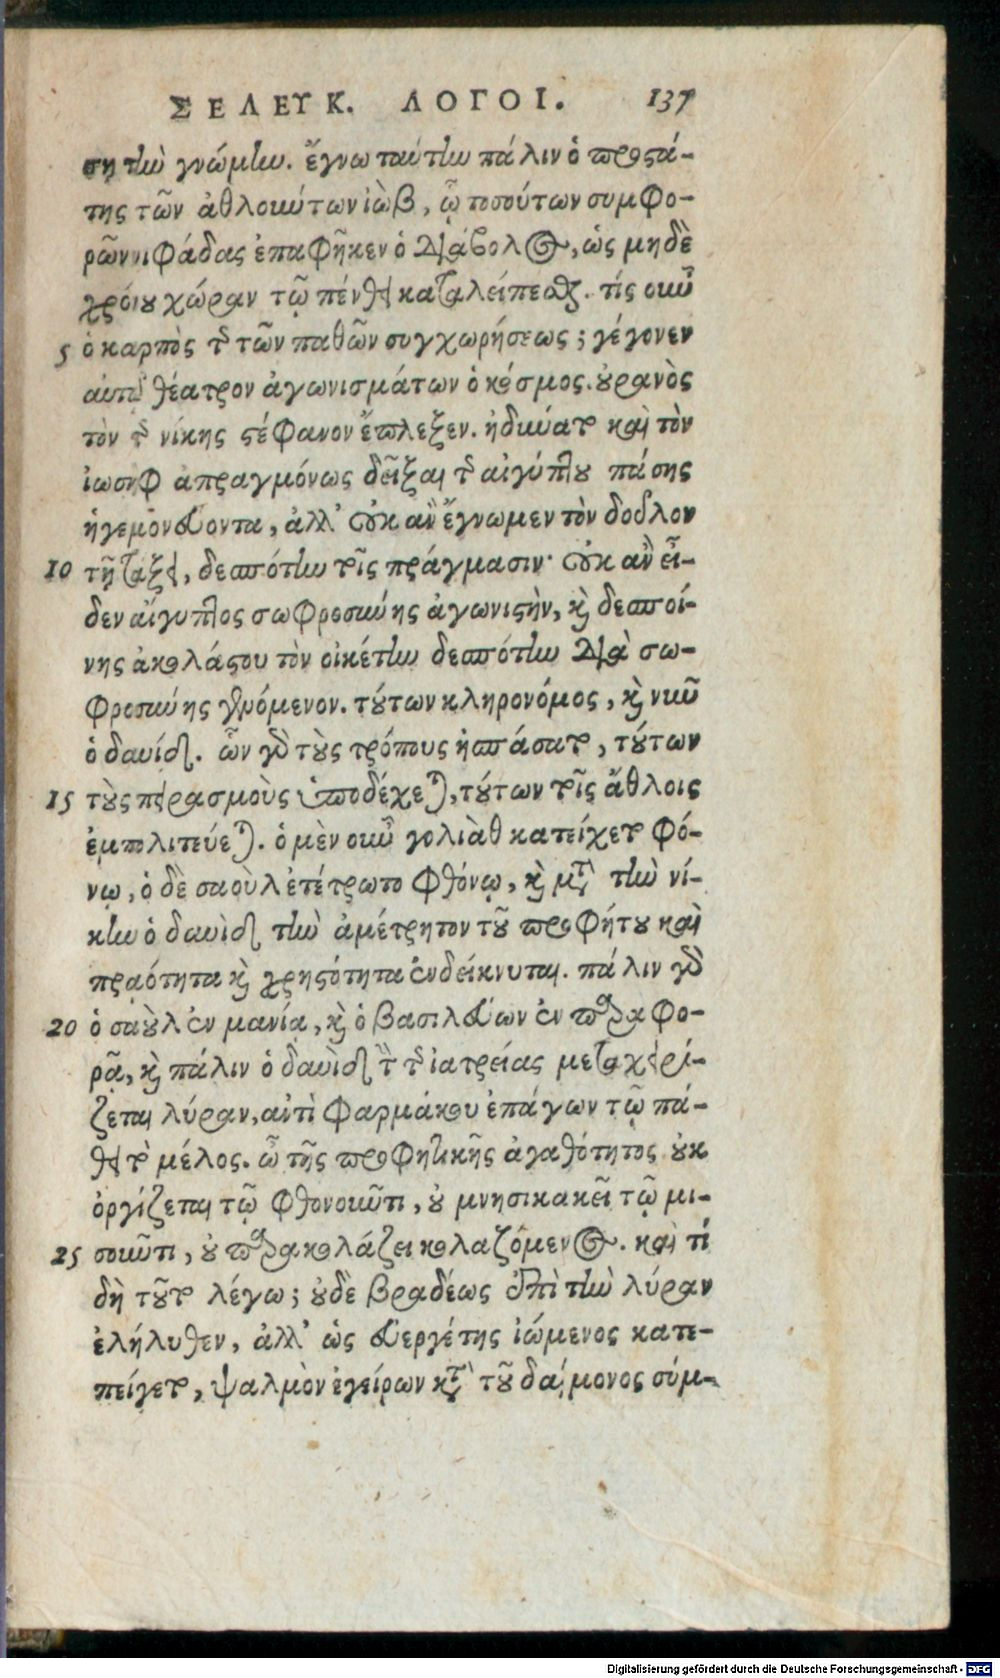 ΣΕΛΕΥΚ. ΛΟΓΟΙ. 137
ση τὴν γνώμην. ἔγνω ταύτην πάλιν ὁ προστά-
της τῶν ἀθλούντων ἰὼβ, ᾧ τοσούτων συμφο-
ρῶν νιφάδας ἐπαφῆκεν ὁ διάβολος, ὡς μηδὲ
χρόνου χώραν τῷ πένθει καταλείπεσθαι. τίς οὖν
5 ὁ καρπὸς τῆς τῶν παθῶν συγχωρήσεως; γέγονεν
αὐτῷ θέατρον ἀγωνισμάτων ὁ κόσμος. οὐρανὸς
τὸν τῆς νίκης στέφανον ἔπλεξεν. ἠδύνατο καὶ τὸν
ἰωσὴφ ἀπραγμόνως δεῖξαι τῆς αἰγύπτου πάσης
ἡγεμονεύοντα, ἀλλ' οὐκ ἂν ἔγνωμεν τὸν δοῦλον
10 τῇ τάξει, δεσπότην τοῖς πράγμασιν· οὐκ ἂν εἶ-
δεν αἴγυπτος σωφροσύνης ἀγωνιστὴν, καὶ δεσποί-
νης ἀκολάστου τὸν οἰκέτην δεσπότην διὰ σω-
φροσύνης γενόμενον. τούτων κληρονόμος, καὶ νῦν
ὁ δαυίδ. ὧν γὰρ τοὺς τρόπους ἠσπάσατο, τούτων
15 τοὺς πειρασμοὺς ὑποδέχεται, τούτων τοῖς ἄθλοις
ἐμπολιτεύεται. ὁ μὲν οὖν γολιὰθ κατείχετο φό-
νῳ, ὁ δὲ σαοὺλ ἐτέτρωτο φθόνῳ, καὶ μετὰ τὴν νί-
κην ὁ δαυὶδ τὴν ἀμέτρητον τοῦ προφήτου καὶ
πραότητα καὶ χρηστότητα ἐνδείκνυται. πάλιν γὰρ
20 ὁ σαοὺλ ἐν μανίᾳ, καὶ ὁ βασιλεύων ἐν παραφο-
ρᾷ, καὶ πάλιν ὁ δαυὶδ τὴν τῆς ἰατρείας μεταχειρί-
ζεται λύραν, ἀντὶ φαρμάκου ἐπάγων τῷ πά-
θει τὸ μέλος. ὢ τῆς προφητικῆς ἀγαθότητος οὐκ
ὀργίζεται τῷ φθονοῦντι, οὐ μνησικακεῖ τῷ μι-
25 σοῦντι, οὐ παρακολάζει κολαζόμενος. καὶ τί
δὴ τοῦτο λέγω; οὐδὲ βραδέως ἐπὶ τὴν λύραν
ἐλήλυθεν, ἀλλ' ὡς εὐεργέτης ἰώμενος κατε-
πείγετο, ψαλμὸν ἐγείρων κατὰ τοῦ δαίμονος σύμ-
Digitalisierung gefördert durch die Deutsche Forschungsgemeinschaft - DFG